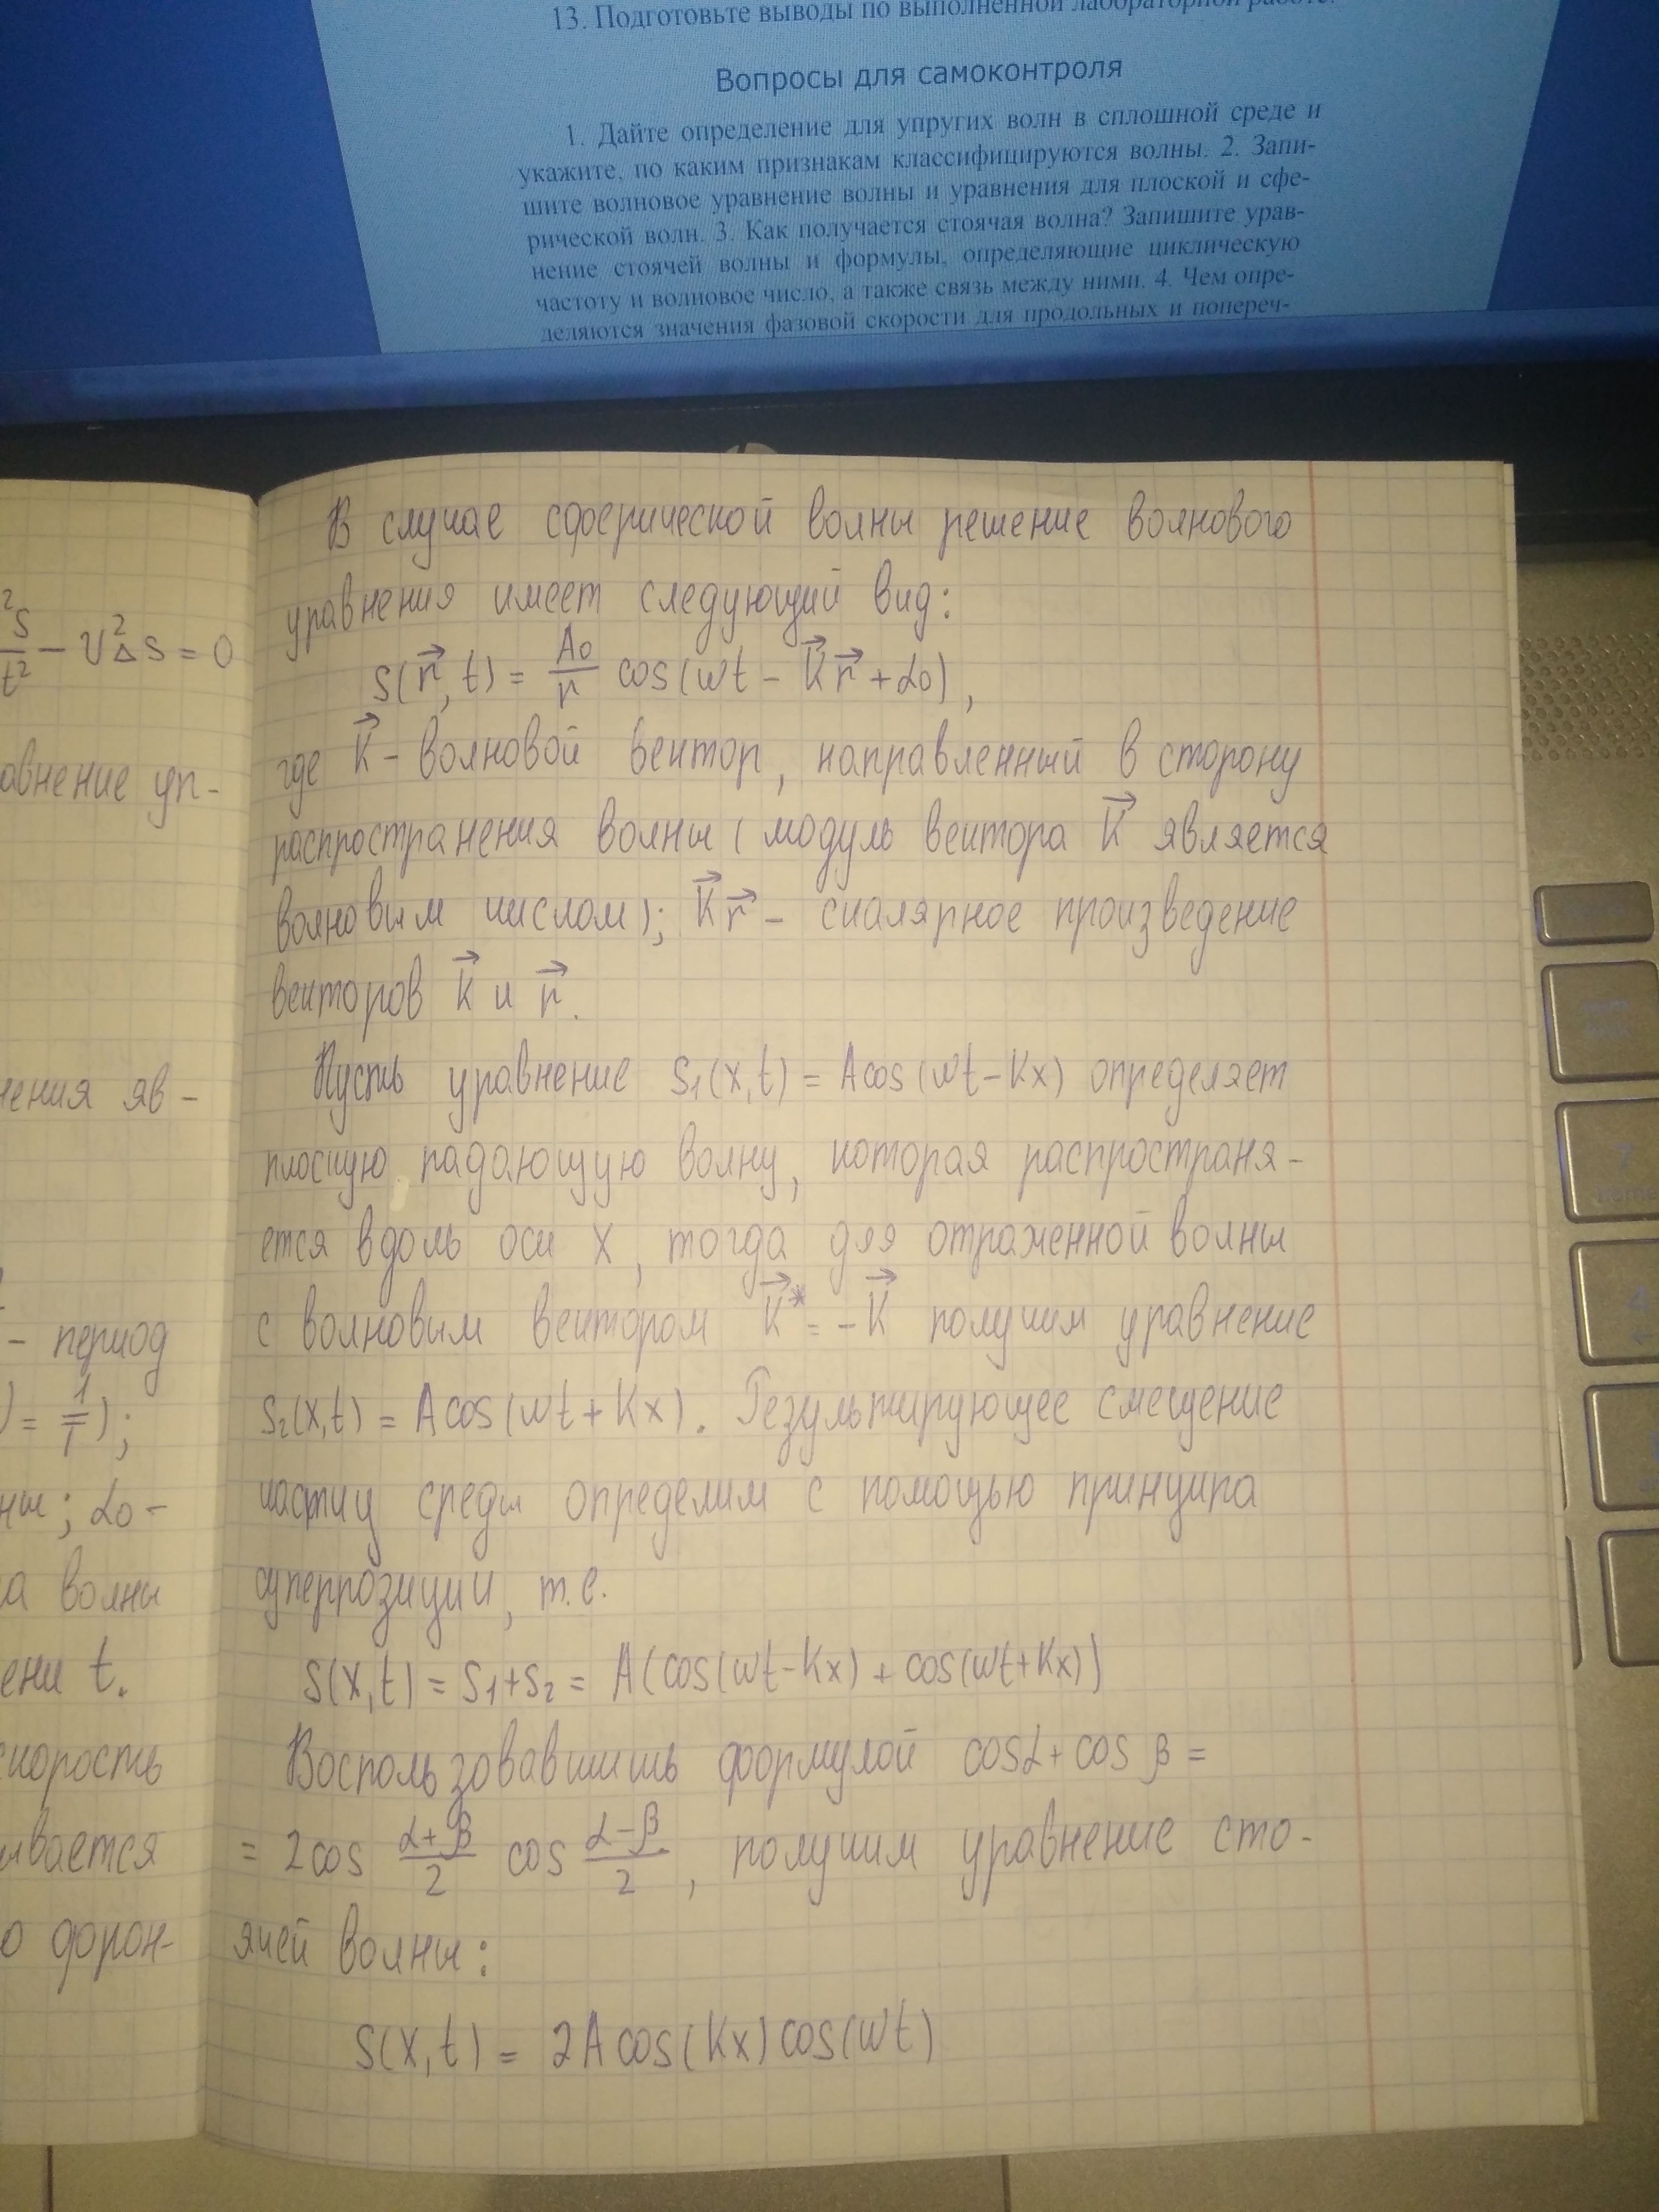 13. Подготовьте выводы по выполненной лабораторной работе.
Вопросы для самоконтроля
1. Дайте определение для упругих волн в сплошной среде и
укажите, по каким признакам классифицируются волны. 2. Запи-
шите волновое уравнение волны и уравнения для плоской и сфе-
рической волн. 3. Как получается стоячая волна? Запишите урав-
нение стоячей волны и формулы, определяющие циклическую
частоту и волновое число, а также связь между ними. 4. Чем опре-
деляются значения фазовой скорости для продольных и попереч-
²S
t² - V²ΔS = 0
авнение уп-
нения яв-
- период
) = 1/T);
ны; α₀ -
а волны
ени t.
скорость
ывается
о форон-
В случае сферической волны решение волнового
уравнения имеет следующий вид:
S(r⃗, t) = A₀/r cos(ωt - K⃗r⃗ + α₀),
где K⃗ - волновой вектор, направленный в сторону
распространения волны (модуль вектора K⃗ является
волновым числом); K⃗r⃗ - скалярное произведение
векторов K⃗ и r⃗.
Пусть уравнение S₁(x,t) = A cos(ωt - Kx) определяет
плоскую падающую волну, которая распространя-
ется вдоль оси X, тогда для отраженной волны
с волновым вектором K⃗* = -K⃗ получим уравнение
S₂(x,t) = A cos(ωt + Kx). Результирующее смещение
частиц среды определим с помощью принципа
суперпозиции, т.е.
S(x,t) = S₁+S₂ = A(cos(ωt-Kx) + cos(ωt+Kx))
Воспользовавшись формулой cosα + cos β =
= 2cos (α+β)/2 cos (α-β)/2, получим уравнение сто-
ячей волны:
S(x,t) = 2A cos(Kx) cos(ωt)
7
home
4
←